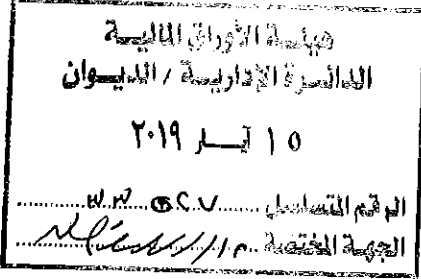 هيئة الأوراق المالية
الدائرة الإدارية / الديوان
١٥ آيار ٢٠١٩
الرقم التسلسل
الجهة المختصة